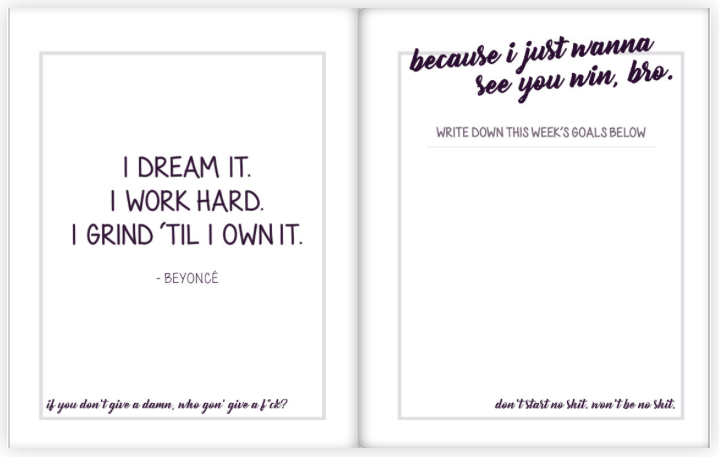 I DREAM IT.
I WORK HARD.
I GRIND ‘TIL I OWN IT.
- BEYONCÉ
if you don't give a damn, who gon' give a f*ck?
because i just wanna
see you win, bro.
WRITE DOWN THIS WEEK'S GOALS BELOW
don't start no shit. won't be no shit.